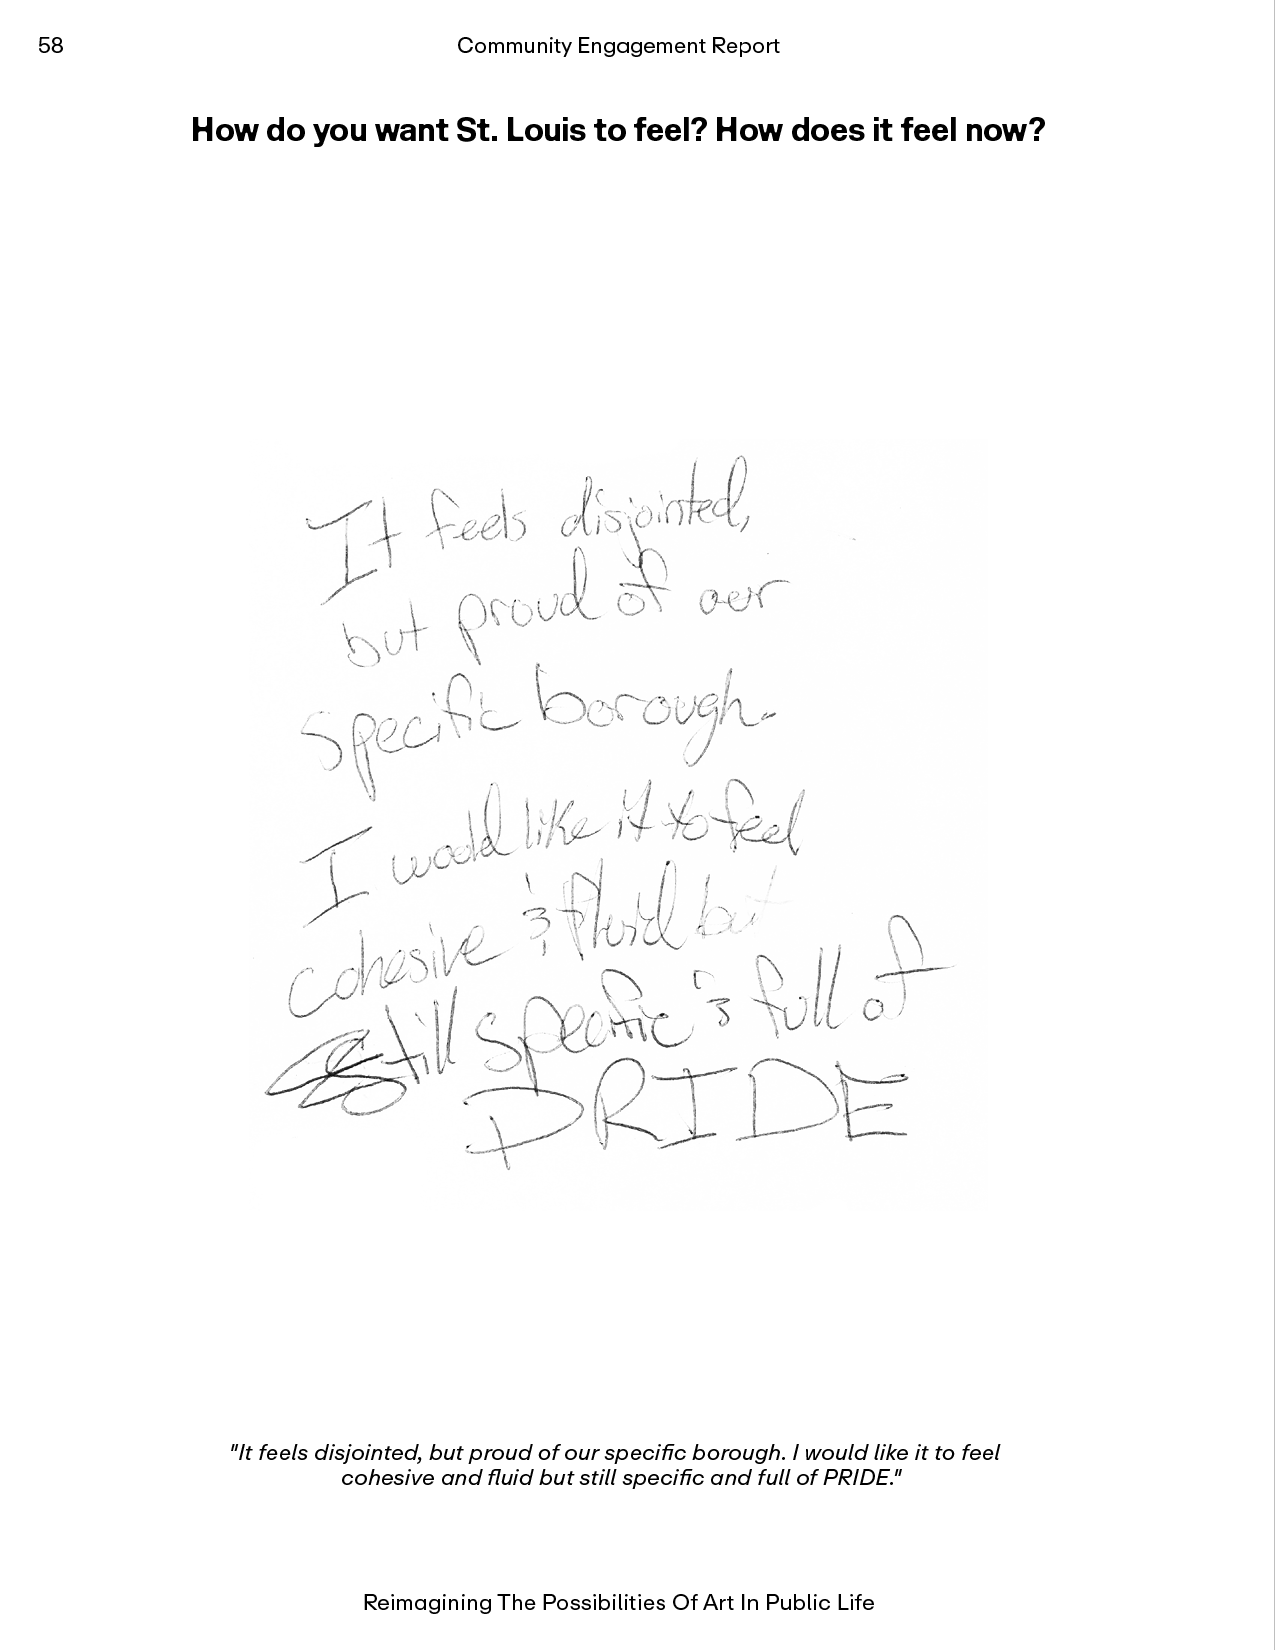 58
Community Engagement Report
How do you want St. Louis to feel? How does it feel now?
It feels disjointed,
but proud of our
specific borough.
I would like it to feel
cohesive & fluid but
still specific & full of
PRIDE
"It feels disjointed, but proud of our specific borough. I would like it to feel
cohesive and fluid but still specific and full of PRIDE."
Reimagining The Possibilities Of Art In Public Life